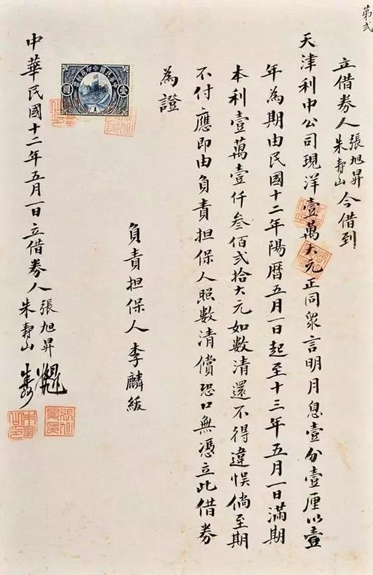 第弍
立借券人張旭昇朱寿山今借到
天津利中公司現洋壹萬大元正同衆言明月息壹分壹厘以壹
年為期由民國十二年陽曆五月一日起至十三年五月一日滿期
本利壹萬壹仟叁佰弍拾大元如數清還不得違悞倘至期
不付應即由負責担保人照數清償恐口無憑立此借券
為證
負責担保人李麟紱
中華民國十二年五月一日立借券人張旭昇朱寿山